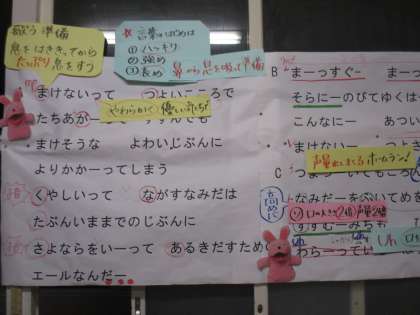 歌う準備
息をはききってから
たっぷり息をすう
言葉のはじめは
① ハッキリ
② 強め
③ 長め
鼻から息を吸って準備
まけないって つよいこころで
やわらかく優しい気もち
たちあが
まけそうな よわいじぶんに
よりかかーってしまう
くやしいって ながすなみだは
たぶんいままでのじぶんに
さよならをいーって あるきだすため
エールなんだー
B
まーっすぐー
そらにーのびてゆくは
こんなにー あつい
まけないー つよ
声量 ホームラン!
C
なみだーをふいてめを
すすむーみちも
わらーってい